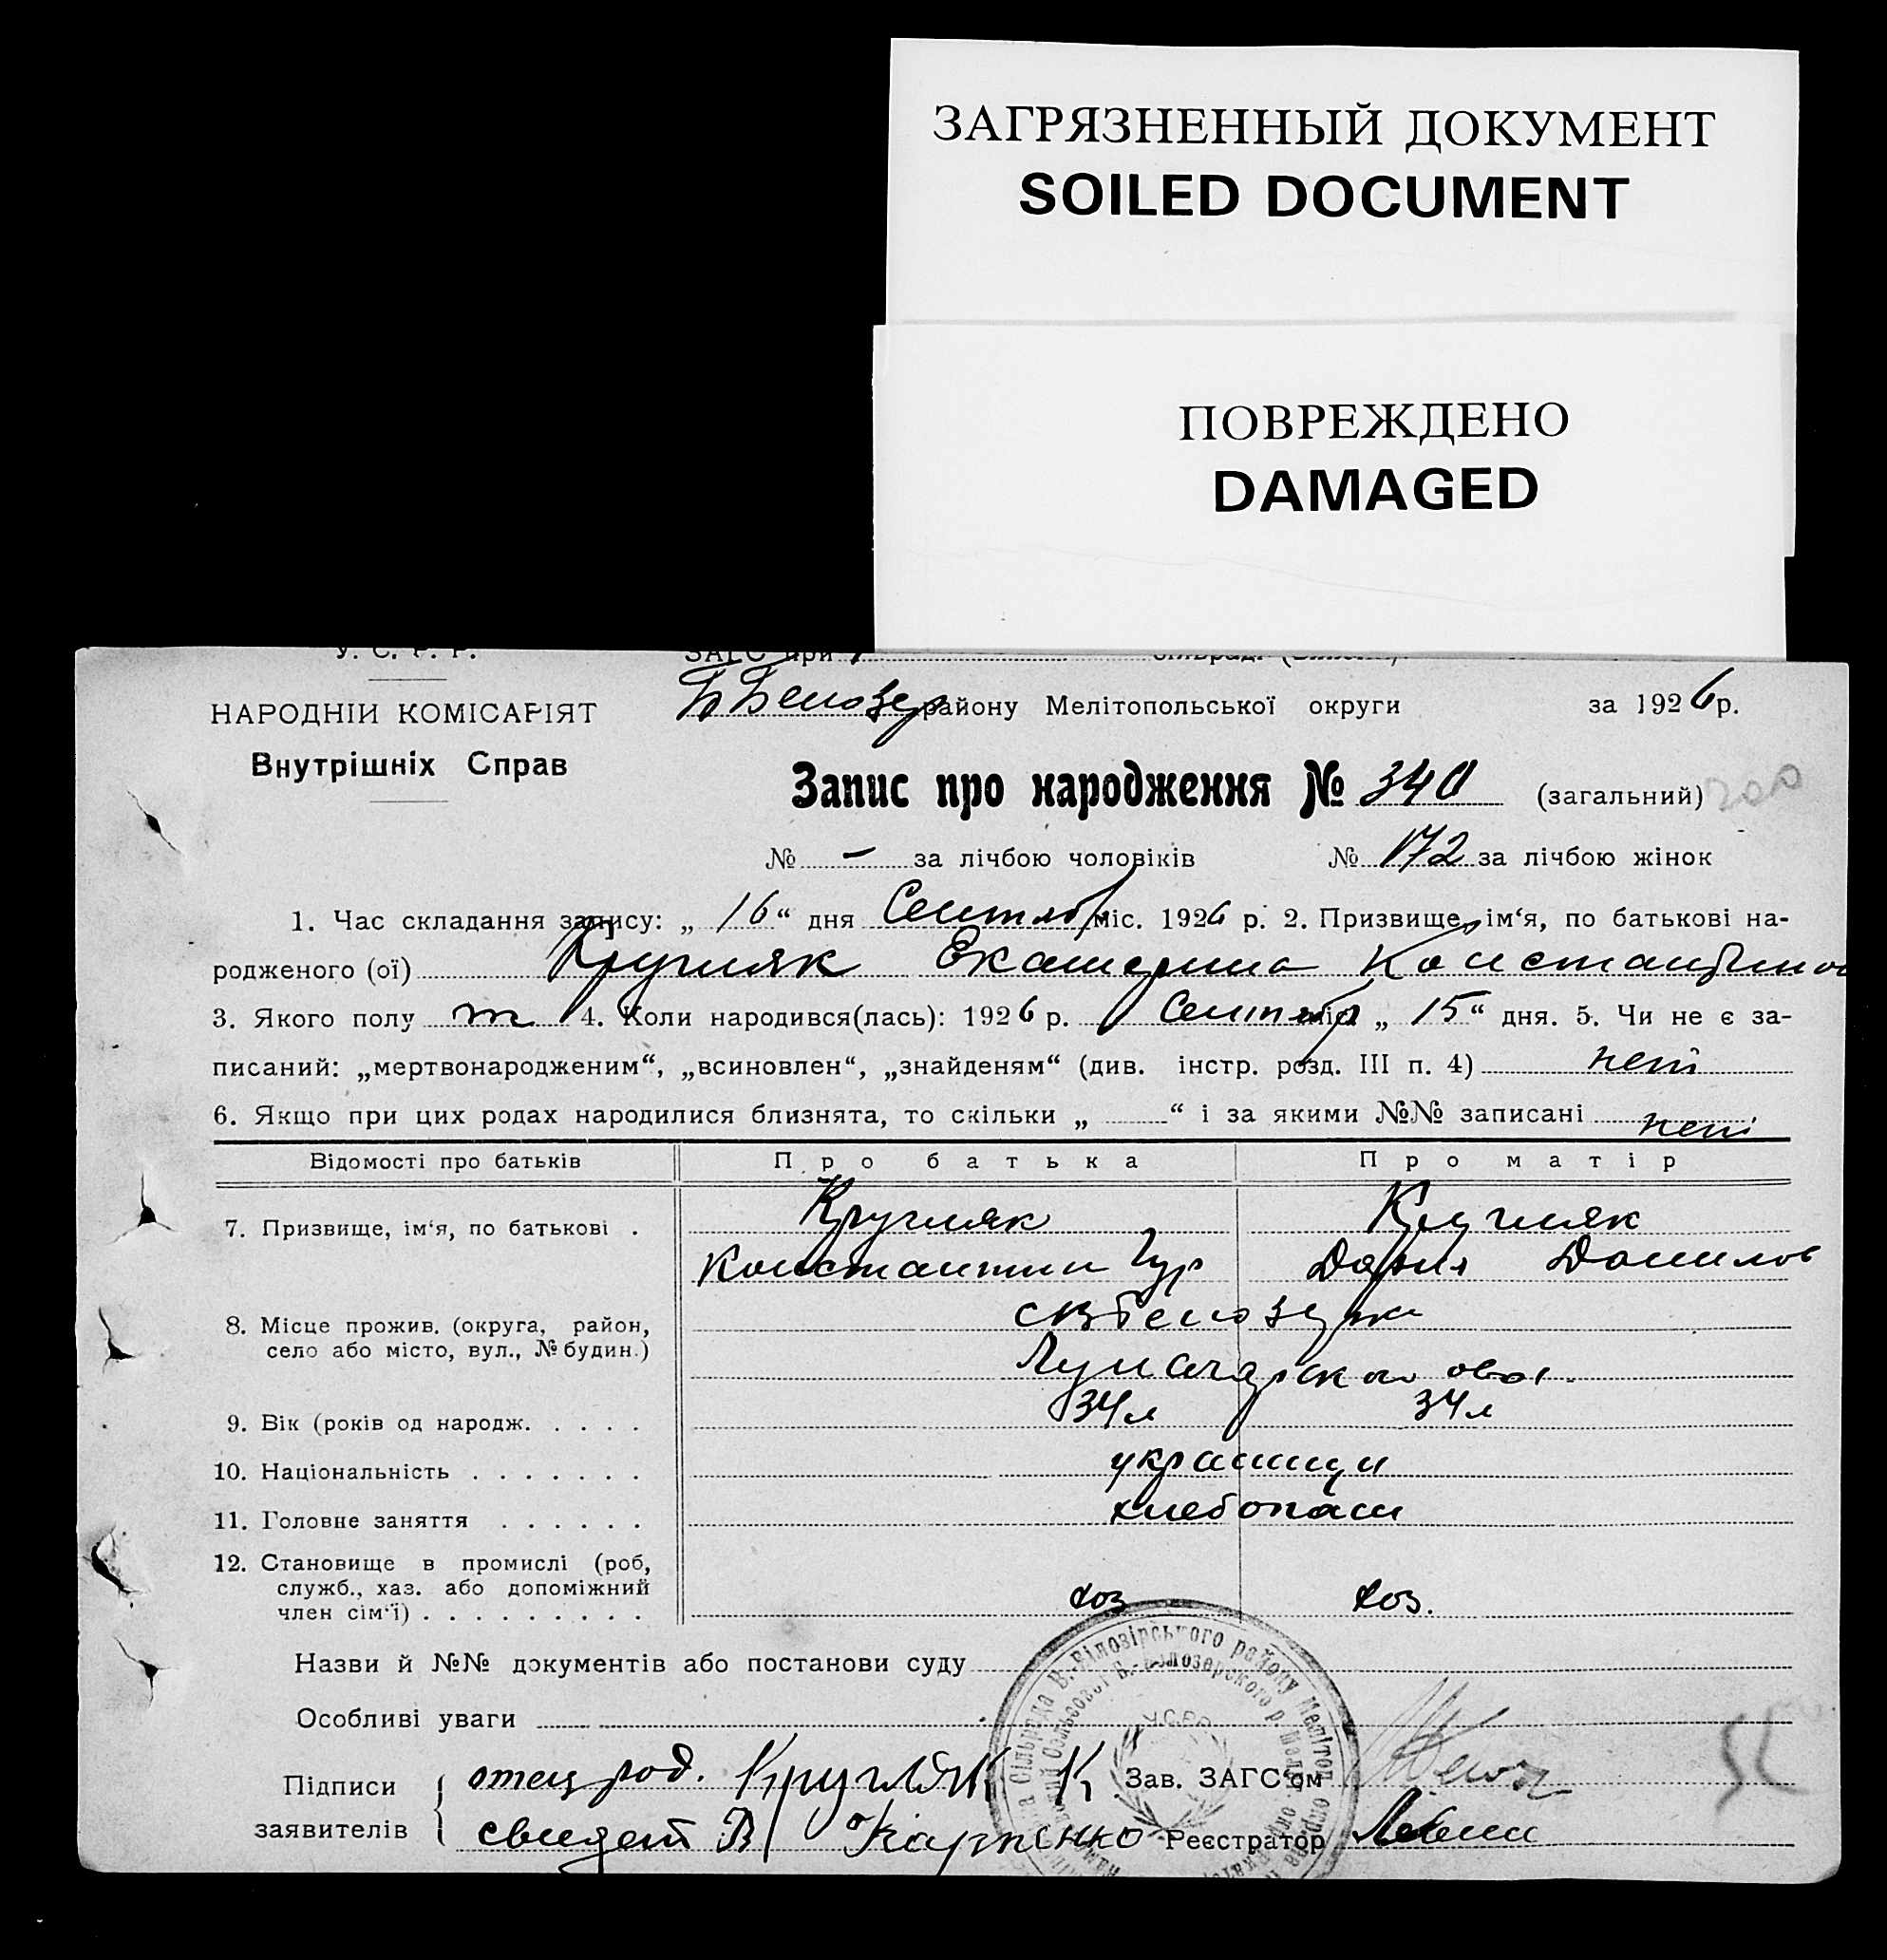 ЗАГРЯЗНЕННЫЙ ДОКУМЕНТ
SOILED DOCUMENT
ПОВРЕЖДЕНО
DAMAGED
У. С. Р. Р.
ЗАГС при
НАРОДНІЙ КОМІСАРІЯТ
Внутрішніх Справ
Белозер району Мелітопольської округи за 1926 р.
Запис про народження № 340 (загальний)
№ – за лічбою чоловіків № 172 за лічбою жінок
1. Час складання запису: „ 16 “ дня Сентяб міс. 1926 р. 2. Призвище, ім‘я, по батькові на-
родженого (ої) Кругляк Екатерина Константинов
3. Якого полу 4. Коли народився(лась): 1926 р. Сентябр міс. „ 15 “ дня. 5. Чи не є за-
писаний: „мертвонародженим“, „всиновлен“, „знайденям“ (див. інстр. розд. III п. 4) нет
6. Якщо при цих родах народилися близнята, то скільки „ “ і за якими №№ записані нет
Відомості про батьків Про батька Про матір
7. Призвище, ім‘я, по батькові . Кругляк Кругляк
Константин Гур Дария Данилов
8. Місце прожив. (округа, район,
село або місто, вул., № будин.)
9. Вік (років од народж. . . . . 34 л 34 л
10. Національність . . . . . . . украинцы
11. Головне заняття . . . . . . хлебопаш
12. Становище в промислі (роб,
служб., хаз. або допоміжний
член сім‘ї) . . . . . . . . . хоз хоз.
Назви й №№ документів або постанови суду
Особливі уваги
Підписи
заявителів
отец род. Кругляк К. Зав. ЗАГС‘ом
свидет В Карпенко Реєстратор